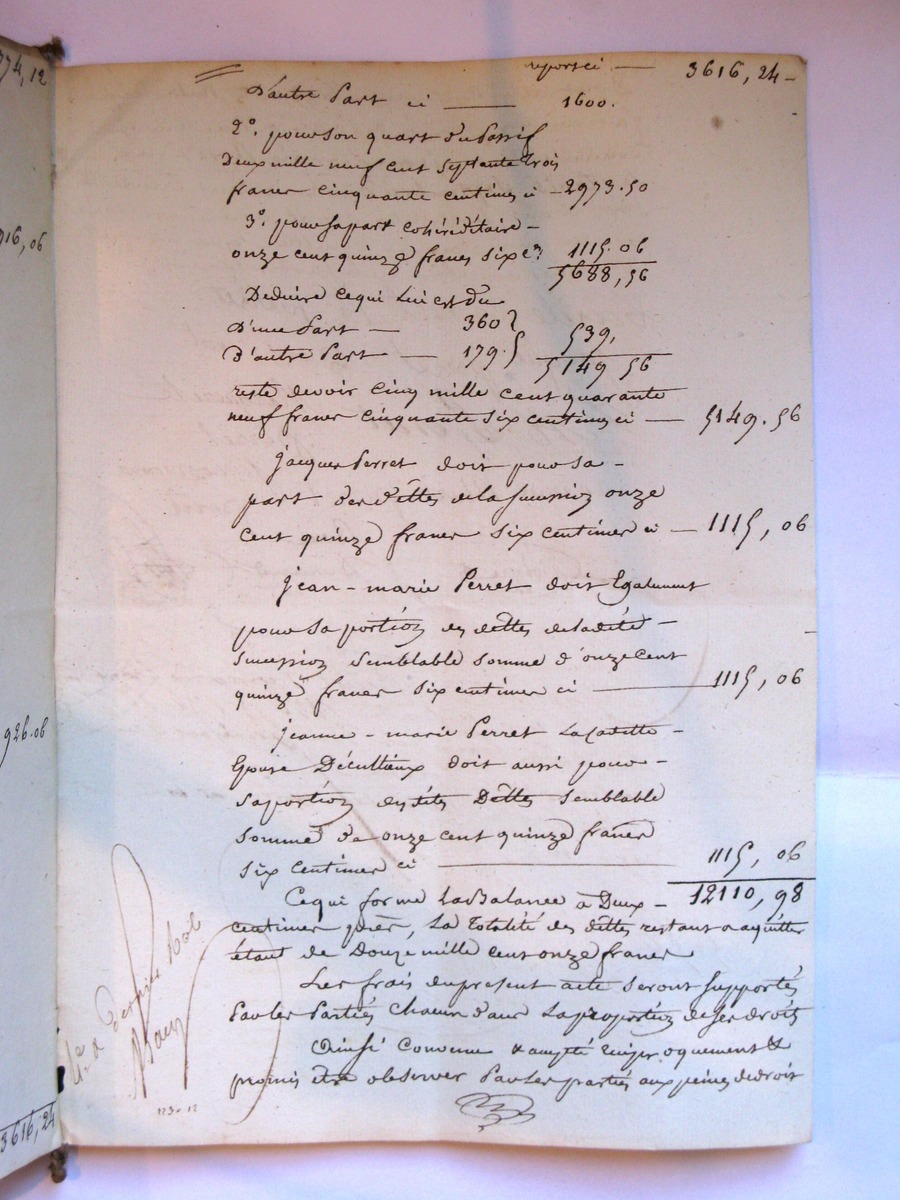 report ci — 3616, 24 -
D'autre Part ci — 1600.
2°. pour son quart du Passif
Deux mille neuf cent septante trois
francs cinquante centimes ci - 2973.50
3°. pour sa part cohéréditaire -
onze cent quinze francs six c.es 1115.06
5688, 56
Deduire ce qui lui est dû
D'une Part — 360
D'autre Part — 179. 539,
5149 56
reste devoir cinq mille cent quarante
neuf francs cinquante six centimes ci — 5149.56
Jacques Perret doit pour sa -
part des dettes de la succession onze
cent quinze francs six centimes ci — 1115, 06
Jean - marie Perret doit Egalement
pour sa portion des dettes de la dite -
succession semblable somme d'onze cent
quinze francs six centimes ci — 1115, 06
Jeanne - marie Perret La Cadette -
Epouse Décultieux doit aussi pour -
sa portion des dites Dettes semblable
somme de onze cent quinze francs
six centimes ci — 1115, 06
Ce qui forme la Balance à Deux - 12110, 98
centimes près, La Totalité des dettes restant a aquitter
étant de Douze mille cent onze francs
Les frais du present acte seront supportés
Par les Parties chacun d'eux La proportion de ses droits
Ainsi convenu & accepté reciproquement &
promis etre observer Par les parties aux peines de droit
774, 12
716, 06
926.06
3616, 24